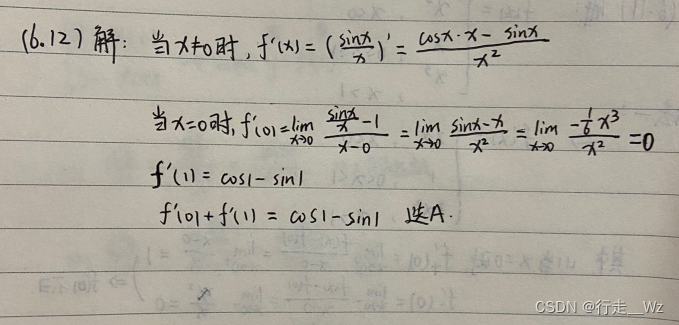 (6.12) 解: 当x≠0时, f'(x) = (sinx/x)' = (cosx·x - sinx)/x²
当x=0时, f'(0) = lim x→0 (sinx/x - 1)/(x-0) = lim x→0 (sinx-x)/x² = lim x→0 (-1/6 x³)/x² = 0
f'(1) = cos1 - sin1
f'(0) + f'(1) = cos1 - sin1 选A.
CSDN @行走__Wz